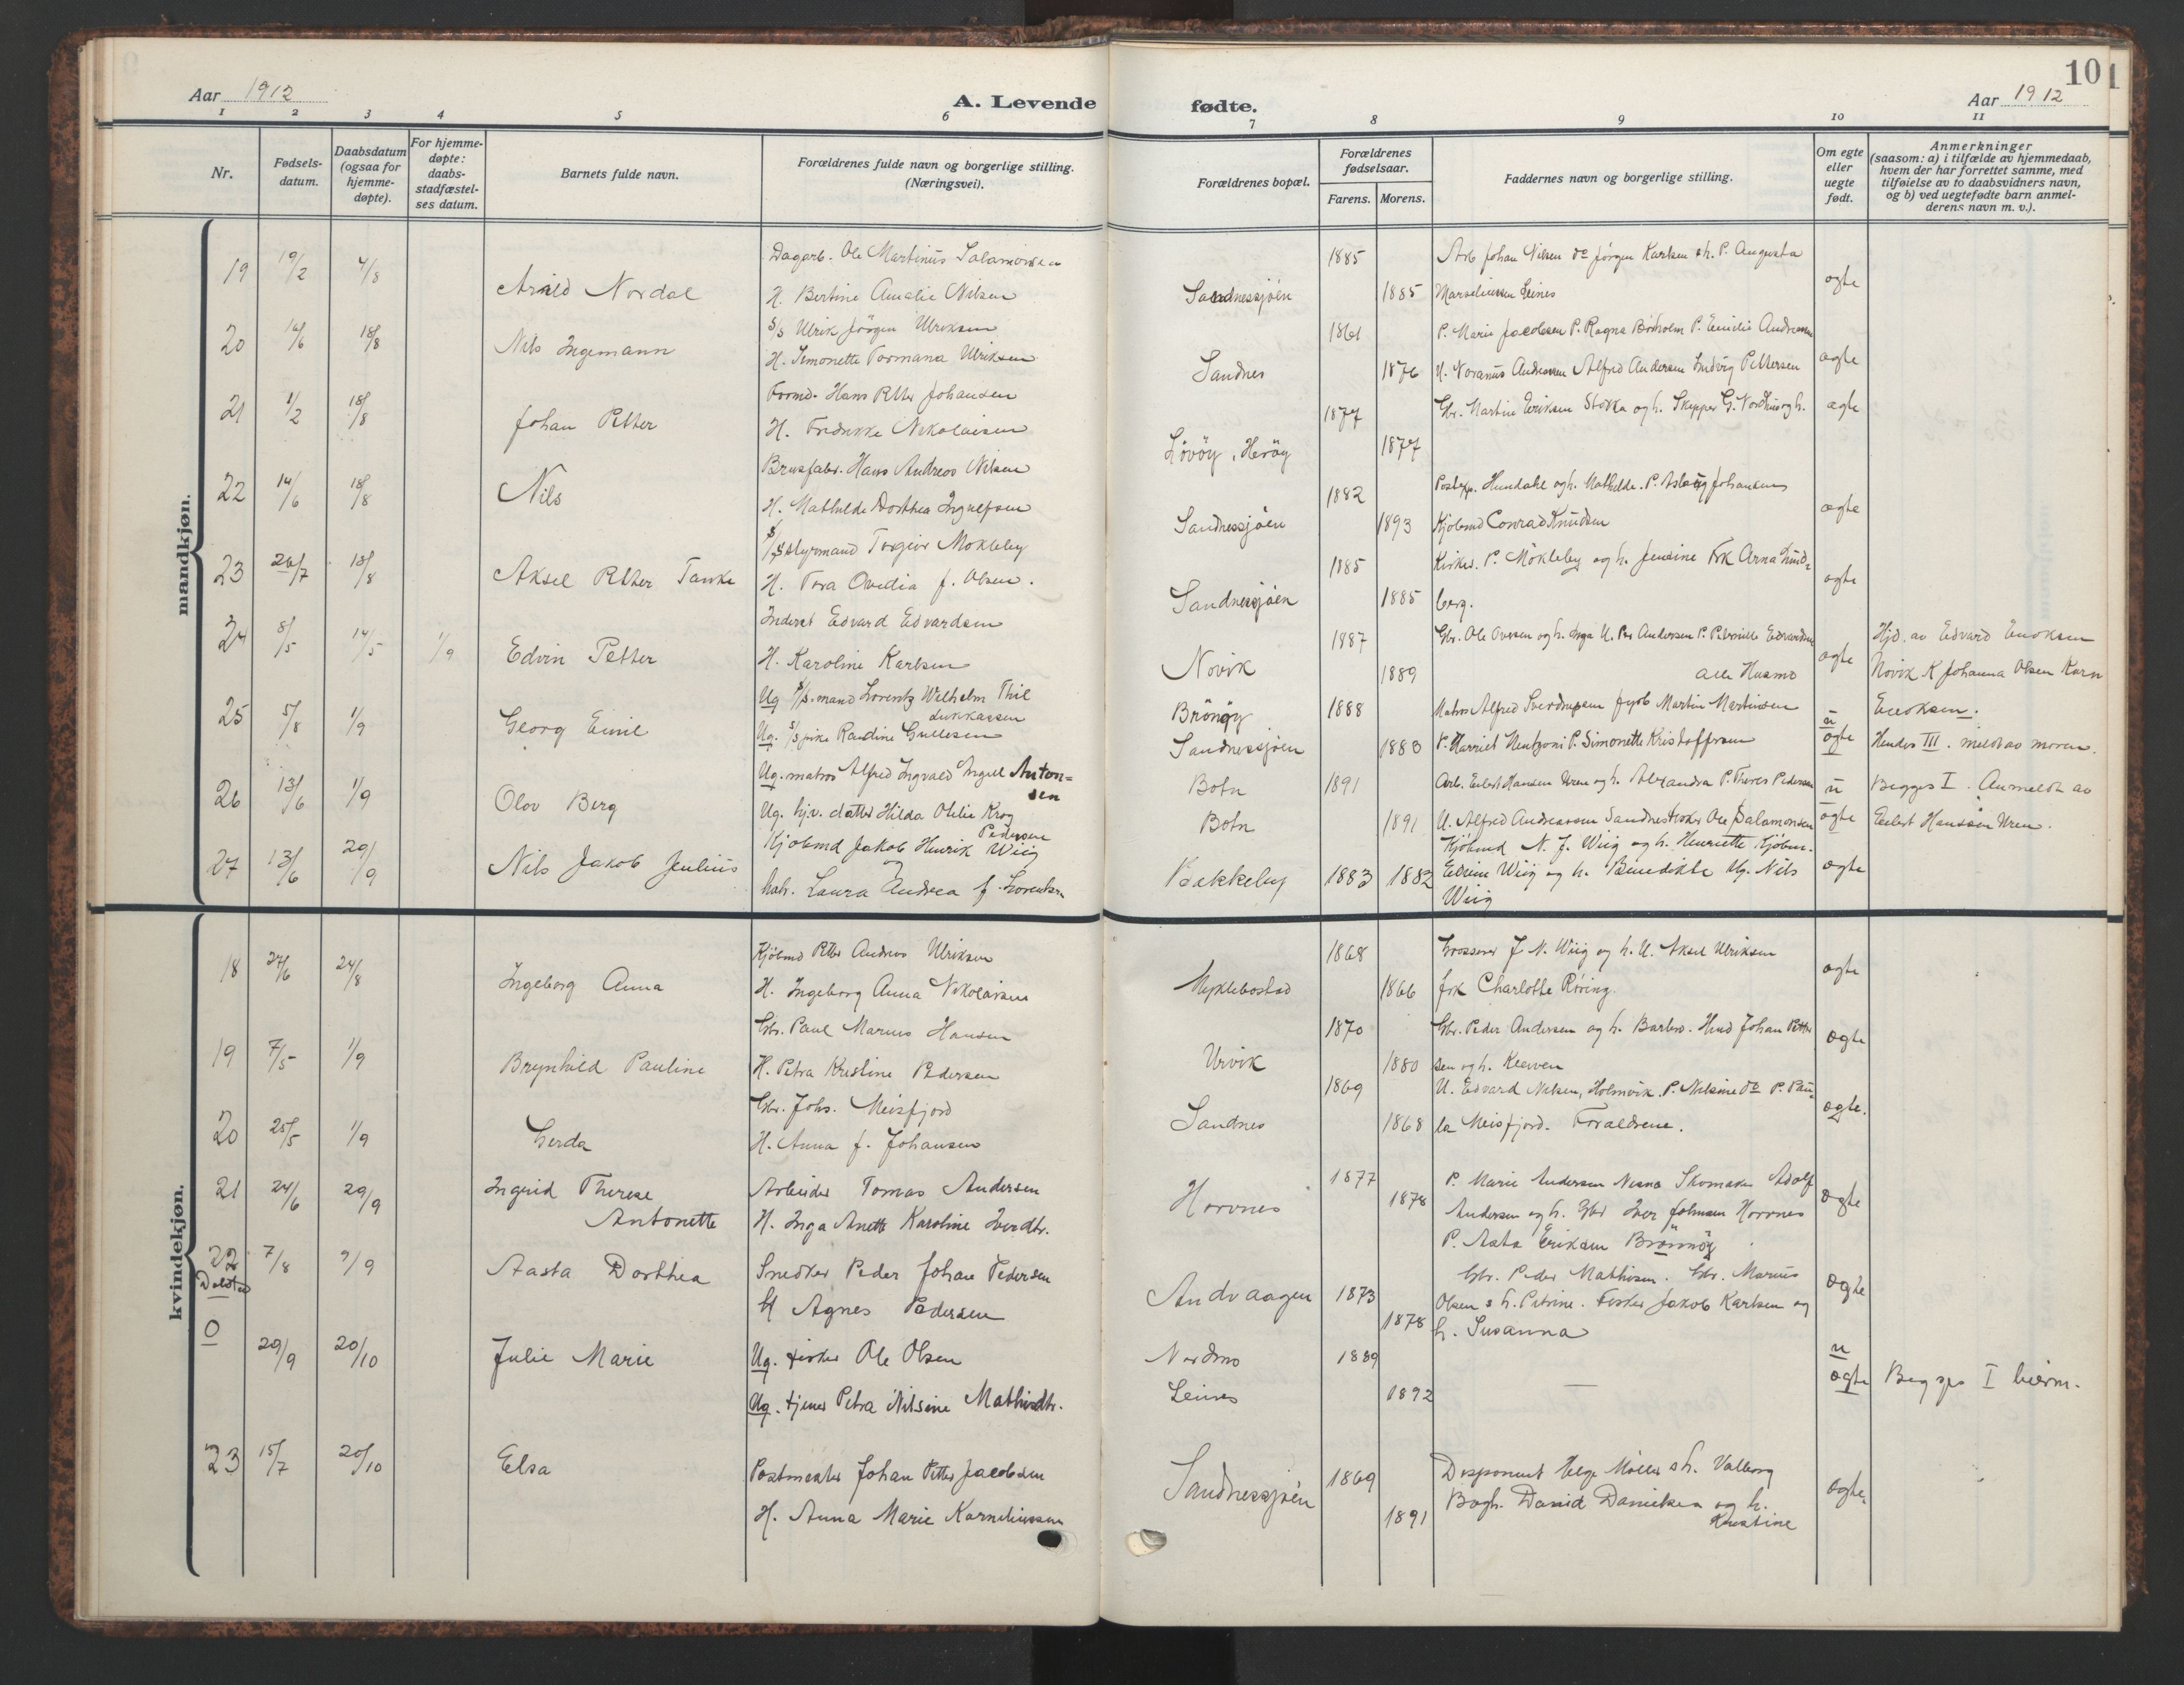 Aar 1912
A. Levende fødte.
Aar 1912
10
1 2 3 4 5 6 7 8 9 10 11
Nr.
Fødsels-
datum.
Daabsdatum
(ogsaa for
hjemme-
døpte).
For hjemme-
døpte:
daabs-
stadfæstel-
ses datum.
Barnets fulde navn.
Forældrenes fulde navn og borgerlige stilling.
(Næringsvei).
Forældrenes bopæl.
Forældrenes
fødselsaar.
Farens. Morens.
Faddernes navn og borgerlige stilling.
Om egte
eller
uegte
født.
Anmerkninger
(saasom: a) i tilfælde av hjemmedaab,
hvem der har forrettet samme, med
tilføielse av to daabsvidners navn,
og b) ved uegtefødte barn anmel-
derens navn m. v.).
mandkjøn.
19 19/2 4/8 Arild Nordal
Dagarb. Ole Martinus Salamonsen
H. Bertine Amalie Nilsen
Sandnessjöen 1885 1885
Arb Johan Nilsen do Jörgen Karlsen & h. P. Augusta
Marseliussen Leines
egte
20 16/6 18/8 Nils Ingemann
S/S Ulrik Jörgen Ulriksen
H. Simonette Tormana Ulriksen
Sandnes 1861 1876
P. Marie Jacobsen P. Ragna Börholm P. Emilie Andreassen
U. Noranus Andreassen Alfred Andersen Ludvig Pettersen
ægte
21 1/2 18/8 Johan Petter
Formd. Hans Petter Johansen
H. Fredrikke Nikolaisen
Lövöy, Heröy 1877 1877
Gbr. Martin Eriksen Stokka og h. Skipper G. Nordhus og h.
ægte
22 14/6 18/8 Nils
Brusfabr. Hans Andreas Nilsen
H. Mathilde Dorthea Ingulfsen
Sandnessjöen 1882 1893
Postexp. Hundahl og h. Mathilde. P. Aslaug Johansen
Kjöbmd Conrad Knudsen
ægte
23 26/7 18/8 Aksel Petter Tanke
S/S styrmand Torgeir Mökleby
H. Tora Ovedia f. Olsen.
Sandnessjöen 1885 1885
Kirkes. P. Mökleby og h. Jensine Frk Arna Lund-
berg.
ægte
24 8/5 14/5 1/9 Edvin Petter
Inderst Edvard Edvardsen
H. Karoline Karlsen
Novik 1887 1889
Gbr. Ole Ovesen og h. Inga U. Per Andersen P. Petronille Edvardsen
alle Husmo
ægte
Hjd. av Edvard Enoksen
Novik K Johanna Olsen Karn
Enoksen.
25 5/8 1/9 Georg Emil
Ug S/S.mand Lorentz Wilhelm Thil
Lukkassen
Ug. S/S pike Randine Gullesen
Brönöy
Sandnessjöen 1888 1883
Matros Alfred Sverdrupsen fyrb Martin Martinsen
P. Harriet Hentzoni P. Simonette Kristoffersen
u
ægte
Hendes III. meldt av moren.
26 13/6 1/9 Olov Berg
Ug. matros Alfred Ingvald Ingell Anton-
sen
Ug. hjv. datter Hilda Otelie Krog
Pedersen
Botn
Botn 1891 1891
Arb. Eilert Hansen Uren og h. Alexandra P. Theres Pedersen
U. Alfred Andreassen Sandnes Fisker Ole Salamonsen
u
ægte
Begges I. Anmeldt av
Eilert Hansen Uren.
27 13/6 29/9 Nils Jakob Julius
Kjöbmd Jakob Henrik Wiig
og
hstr. Laura Andrea f. Lorentsen
Bakkeby 1883 1882
Kjöbmd N. J. Wiig og h. Henriette Kjöbm.
Edvin Wiig og h. Benedikte Ug. Nils
Wiig
ægte
kvindekjøn.
18 24/6 24/8 Ingeborg Anna
Kjöbmd Petter Andreas Ulriksen
H. Ingeborg Anna Nikolaisen
Myklebostad 1868 1866
Grosserer J. N. Wiig og h. U. Aksel Ulriksen
frk Charlotte Röring.
ægte
19 7/5 1/9 Brynhild Pauline
Gbr. Paul Marius Hansen
H. Petra Kristine Pedersen
Urvik 1870 1880
Gbr. Peder Andersen og h. Barbro. Hmd Johan Petter
sen og h.
ægte
20 25/5 1/9 Gerda
Gbr. Johs. Meisfjord
H. Anna f. Johansen
Sandnes 1869 1868
U. Edvard Nilsen, Holmvik. P. Nilsine do P. Pau-
la Meisfjord. Forældrene.
ægte.
21 24/6 29/9 Ingrid Therese
Antonette
Arbeider Tomas Andersen
H. Inga Anette Karoline Iverdtr.
Horvnes 1877 1878
P. Marie Andersen Nesna Skomaker Adolf
Andersen og h. Gbr Iver Johnsen Horvnes
P. Aasta Eriksen Brönnöy
ægte
22 7/8 9/9 Aasta Dorthea
Dolstad
Snedker Peder Johan Pedersen
H Agnes Pedersen
Andraagen 1873 1878
Gbr. Peder Mathisen. Gbr. Marius
Olsen & h. Petrine. Fisker Jakob Karlsen og
h. Susanna
ægte
0 29/9 20/10 Julie Marie
Ug. fisker Ole Olsen
Ug. tjener Petra Nilsine Mathisdtr.
Nordmo
Leines 1889 1892
—
u
ægte
Begges I leierm.
23 15/7 20/10 Elsa
Postmester Johan Petter Jacobsen
H. Anna Marie Korneliussen
Sandnessjöen 1869 1891
Disponent Helge Möller & h. Valborg
Bogh. David Danielsen og h.
Kristine
ægte.